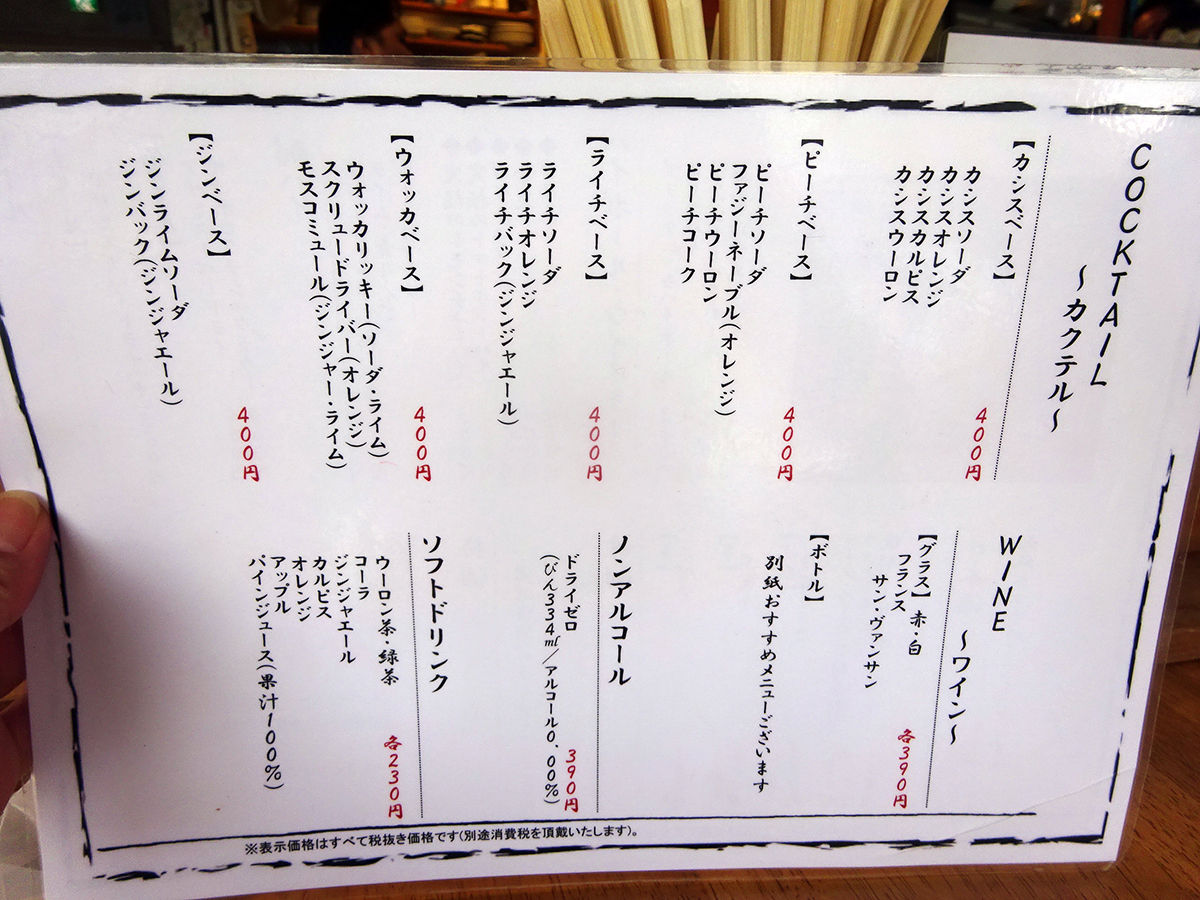 COCKTAIL
～カクテル～
【カシスベース】
カシスソーダ
カシスオレンジ
カシスカルピス
カシスウーロン
400円
【ピーチベース】
ピーチソーダ
ファジーネーブル(オレンジ)
ピーチウーロン
ピーチコーク
400円
【ライチベース】
ライチソーダ
ライチオレンジ
ライチバック(ジンジャエール)
400円
【ウォッカベース】
ウォッカリッキー(ソーダ・ライム)
スクリュードライバー(オレンジ)
モスコミュール(ジンジャー・ライム)
400円
【ジンベース】
ジンライムソーダ
ジンバック(ジンジャエール)
400円
WINE
～ワイン～
【グラス】 赤・白
フランス
サン・ヴァンサン
各390円
【ボトル】
別紙おすすめメニューございます
ノンアルコール
ドライゼロ
(びん334ml／アルコール0.00%)
390円
ソフトドリンク
ウーロン茶・緑茶
コーラ
ジンジャエール
カルピス
オレンジ
アップル
パインジュース(果汁100%)
各230円
※表示価格はすべて税抜き価格です(別途消費税を頂戴いたします)。